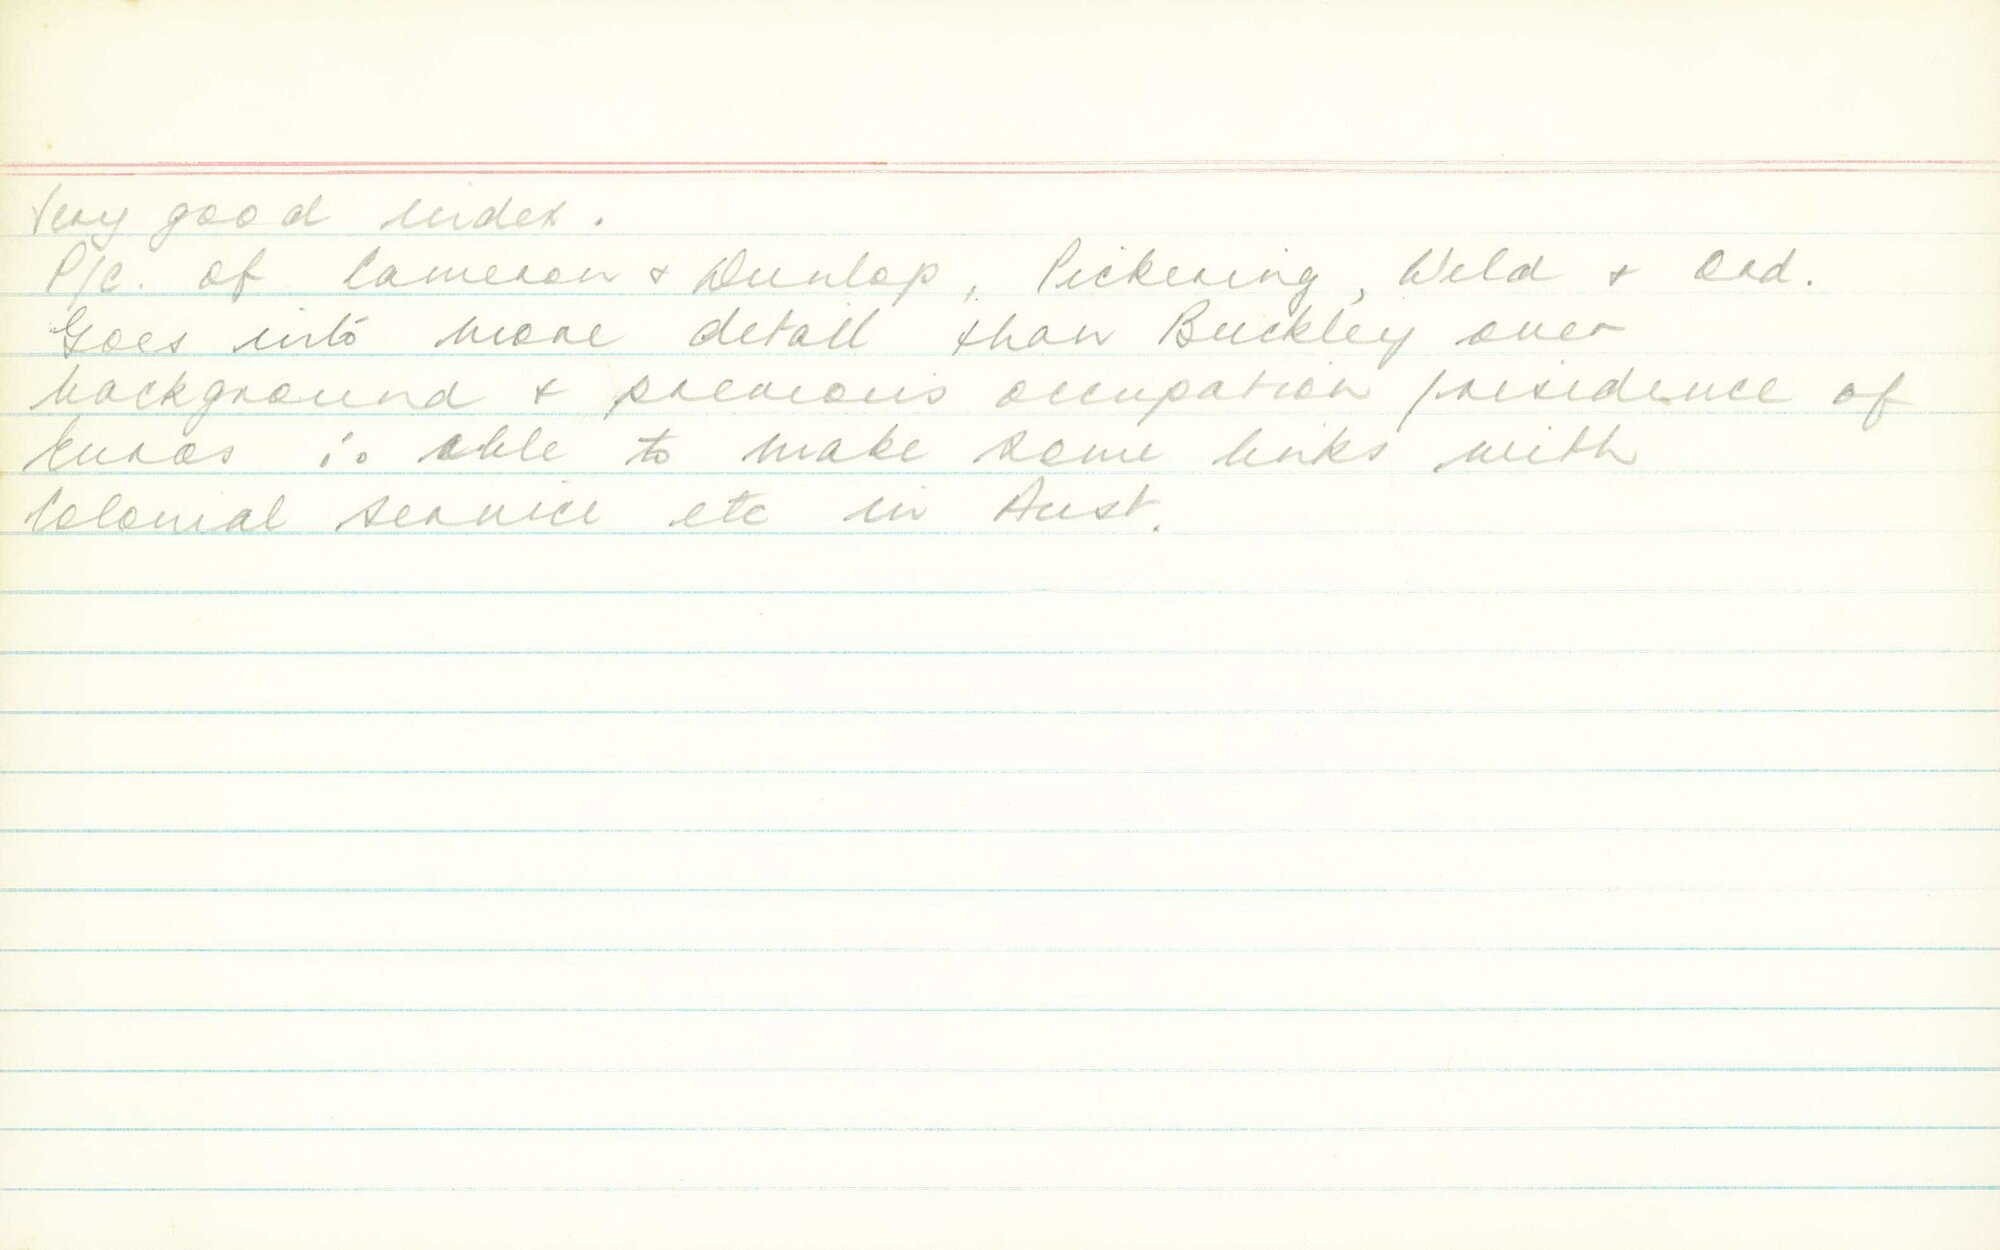 Very good index.
P/c. of Cameron & Dunlop, Pickering, Weld & Ord.
Goes into more detail than Buckley over
background & previous occupation/residence of
Euros ∴ able to make some links with
Colonial service etc in Aust.